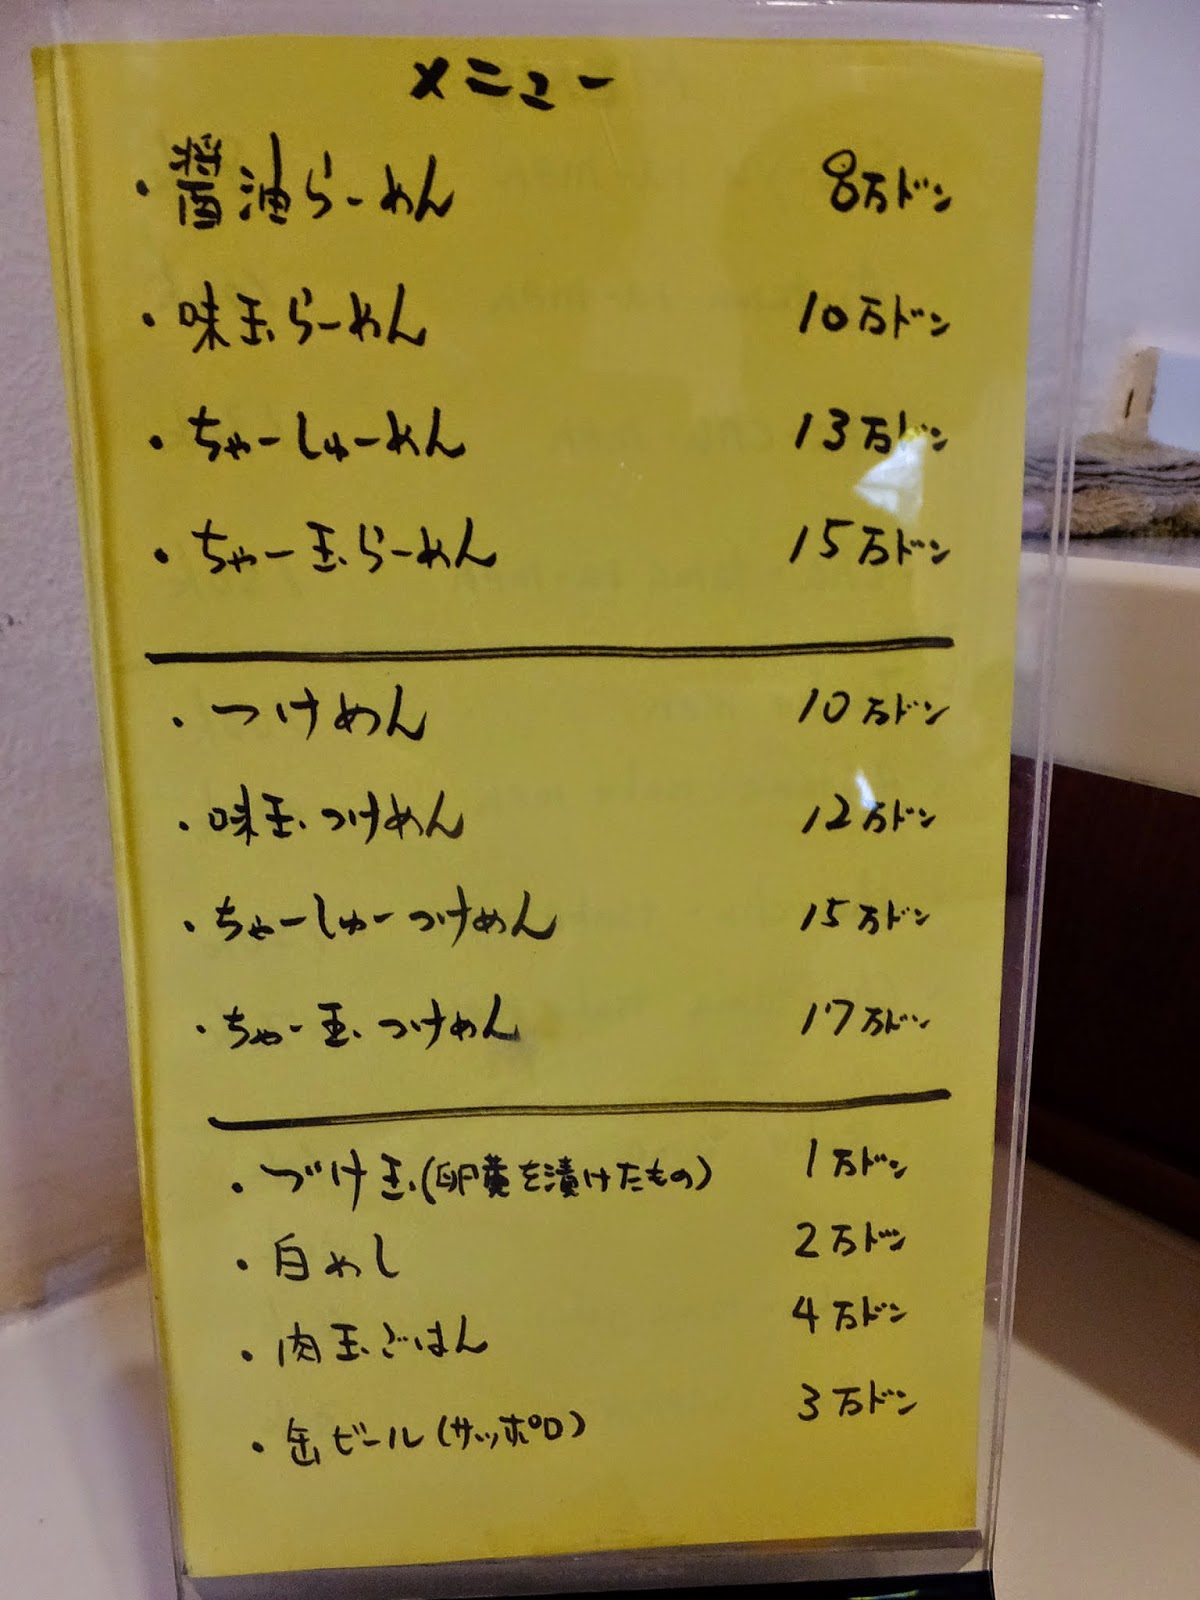 メニュー
・醤油らーめん 8万ドン
・味玉らーめん 10万ドン
・ちゃーしゅーめん 13万ドン
・ちゃー玉らーめん 15万ドン
・つけめん 10万ドン
・味玉つけめん 12万ドン
・ちゃーしゅーつけめん 15万ドン
・ちゃー玉つけめん 17万ドン
・づけ玉(卵黄を漬けたもの) 1万ドン
・白めし 2万ドン
・肉玉ごはん 4万ドン
・缶ビール(サッポロ) 3万ドン